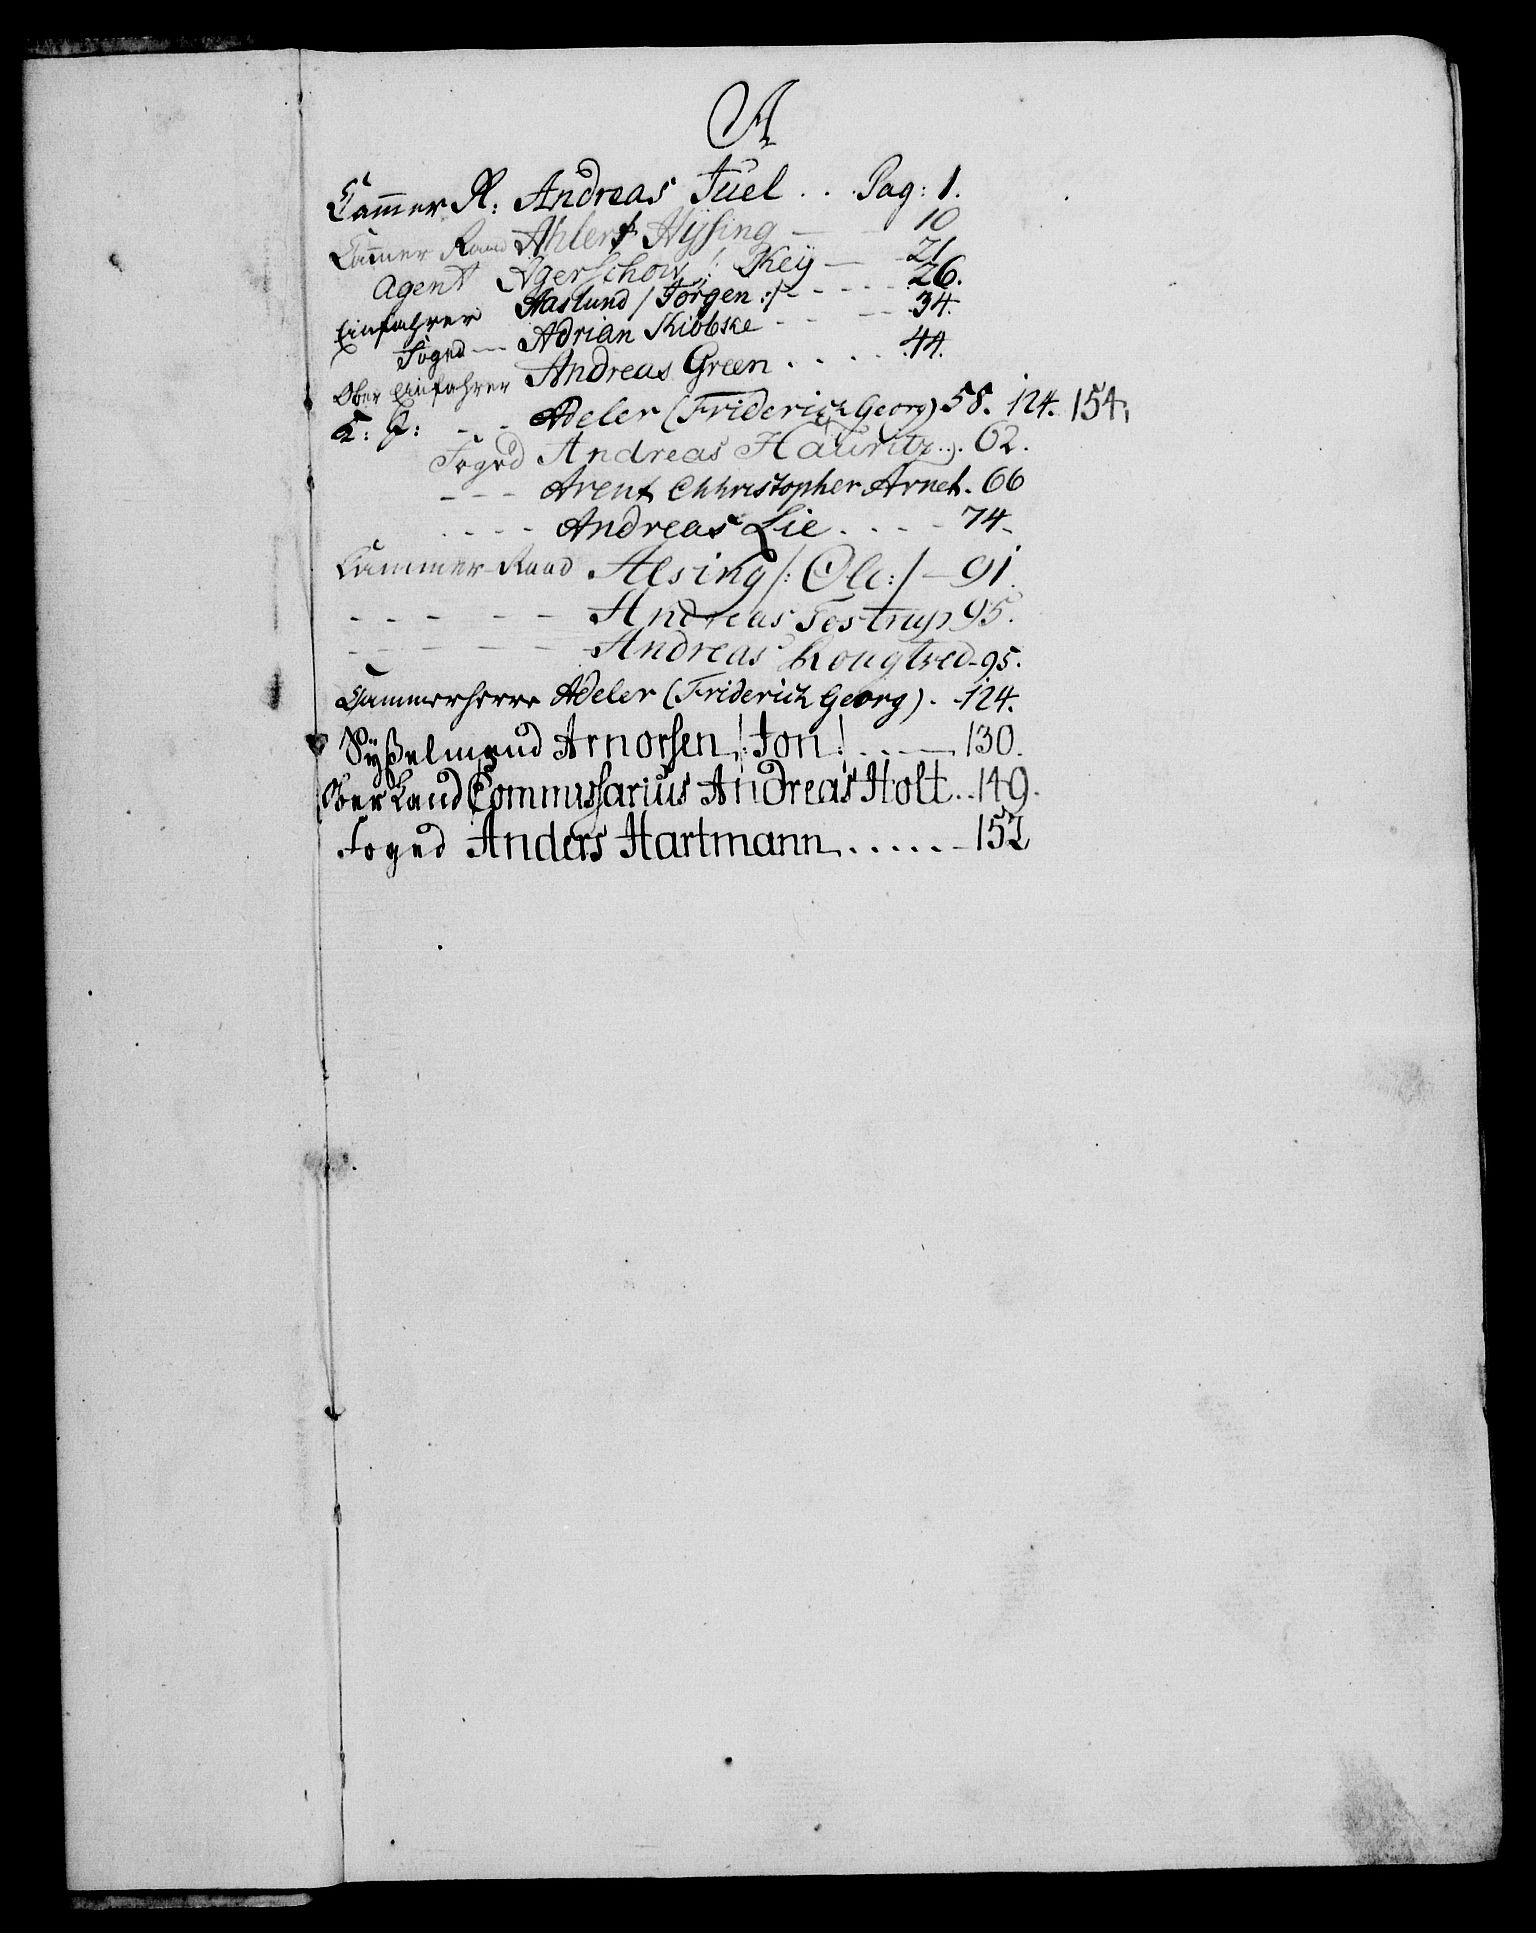 A
Cammer R: Andreas Juel . . . Pag: 1.
Cammer Raad Ahlert Hysing — — 10
Agent Agerschow /: Key — — 21
Einfahrer Aaslund / Jörgen :/ - - - - - 26.
Foged — Adrian Kibbske - - - - 34.
Ober Einfahrer Andreas Green . . . . . 44.
C: H: - - - Adeler (Friderich Georg) 58. 124. 154.
Foged Andreas Hauritz . . . 62.
- - - Arent Chhristopher Arnet. 66
- - - - Andreas Lie . . . - 74.
Cammer-Raad Alsing /: Ole :/ — 91.
- - - - - - Andreas Testrup 95.
- - - - - - Andreas Rougtved - 95.
Cammerherre Adeler (Friderich Georg) . . 124.
Sysselmand Arnorsen /: Jon :/ . . . — 130.
Ober Land Commissarius Andreas Holt . . 149.
Foged Anders Hartmann . . . . . . 152